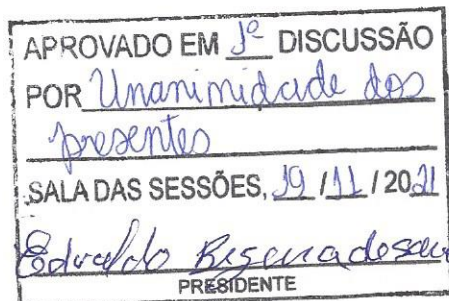 APROVADO EM 1º DISCUSSÃO
POR Unanimidade dos
presentes
SALA DAS SESSÕES, 19 / 11 / 2021
Edvaldo
PRESIDENTE